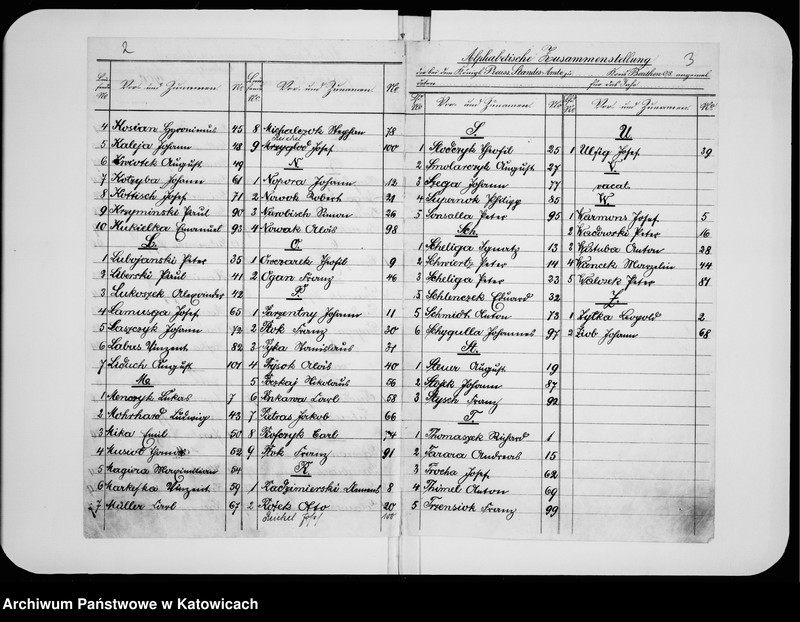 2
Vor- und Zunamen No
4 Kosian Hyronimus 45
5 Kaleja Johann 48
6 Kroutek August 49
7 Kotzyba Johann 61
8 Kottisch Josef 71
9 Kryminski Paul 90
10 Kukielka Emanuel 93
L.
1 Lubojanski Peter 35
2 Liberski Paul 41
3 Lukoszek Alexander 42
4 Lamusga Josef 65
5 Lawczyk Johann 72
6 Labus Vinzent 82
7 Liduch August 101
M.
1 Menczyk Lukas 7
2 Mohrhard Ludwig 43
3 Mika Emil 50
4 Musiol 52
5 Magiera Maximilian 54
6 Markefka Vinzent 59
7 Müller Karl 67
Vor- und Zunamen No
8 Michalczok Stephan 78
Reichel
9 Josef 100
N.
1 Napora Johann 12
2 Nowok Robert 21
3 Nerobisch Simon 26
4 Nowak Alois 98
O.
1 Owczarek Theofil 9
2 Ogan Franz 46
P.
1 Parzentny Johann 11
2 Plok Franz 30
3 Pyka Stanislaus 31
4 Prysok Alois 40
5 Nikolaus 56
6 Pinkawa Karl 58
7 Patras Jakob 66
8 Carl 74
9 Plok Franz 91
R.
1 Radzimierski Klemens 8
2 Rożek Otto 20
Reichel Josef 100
Alphabetische Zusammenstellung 3
der bei dem Königl. Preuss. Standes-Amte zu Kreis Beuthen O/S. angemel-
deten für das Jahr
Vor- und Zunamen No
S
1 Skoczyk Theofil 25
2 Smolarczyk August 27
3 Szega Johann 77
4 Stepanok Philipp 85
5 Sonsalla Peter 95
Sch.
1 Scheliga Ignatz 13
2 Schwiertz Peter 14
3 Scheliga Peter 33
4 Schlenczek Eduard 32
5 Schmidt Anton 73
6 Schygulla Johannes 97
St.
1 Steuer August 19
2 Stojek Johann 87
3 Stysch Franz 92
T.
1 Thomaszek Richard 1
2 Tarara Andreas 15
3 Trocha Josef 62
4 Thimel Anton 69
5 Trzensiok Franz 99
Vor- und Zunamen No
U
1 Ulfig Josef 39
V.
vacat.
W
1 Warmons Josef 5
2 Wadowski Peter 16
2 Anton 28
4 Wancek Marzelin 44
5 Walozek Peter 81
Z
1 Zylka Leopold 2
2 Ziob Johann 68
Archiwum Państwowe w Katowicach